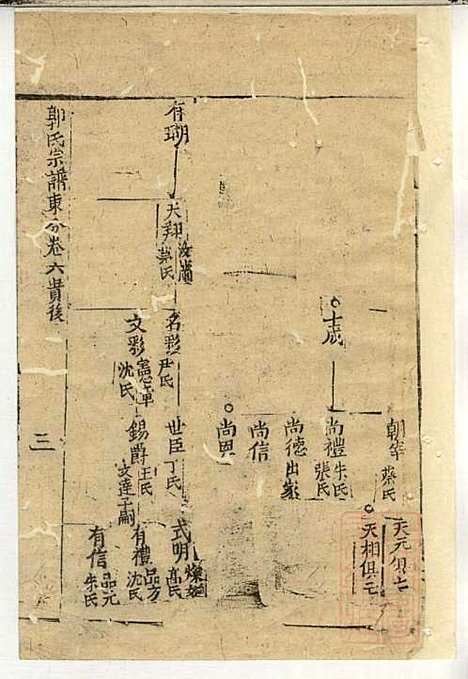 朝宰 蔡氏
天元俱亡
天相俱亡
志成
尚禮 朱氏 張氏
尚德 出家
尚信
尚思
有瑚
天翔 汝當 蔡氏
名彩 尹氏
文彩 憲章 沈氏
世臣 丁氏
錫爵 王氏 文達子嗣
式明 高氏
有禮 品方 沈氏
有信 品元 朱氏
郭氏宗譜東分卷六貴後
三